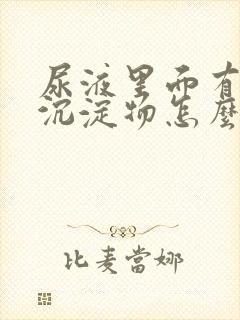 尿液里面有
沉淀物怎麼
比麦當娜